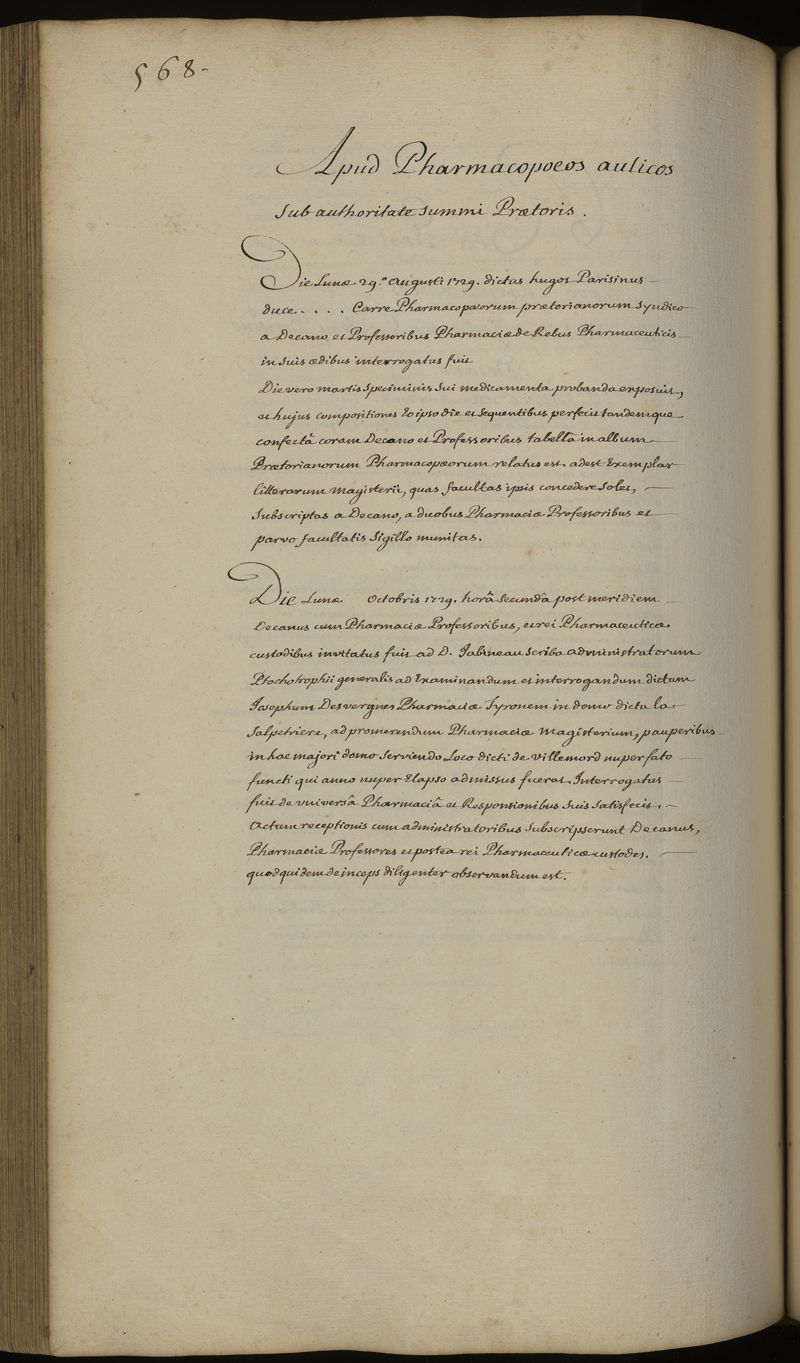 568-
Apud Pharmacopoeos aulicos
sub authoritate summi Prætoris.
Die Lunæ 29.ª Augusti 1729. dictus hugot Parisinus
duce . . . . Carre Pharmacopæorum prætorianorum Syndico
a Decano et Professoribus Pharmaciæ de Rebus Pharmaceuticis
in suis ædibus interrogatus fuit
Die vero martis speciminis sui medicamenta probanda exposuit,
et hujus compositiones Eo ipso die et sequentibus perfecit tandemque
confectâ coram Decano et Professoribus tabellâ in album
Prætorianorum Pharmacopæorum relatus est. adest Exemplar
litterarum magisterii, quas facultas ipsis concedere solet,
subscriptas a Decano, a duobus Pharmaciæ Professoribus et
parvo facultatis sigillo munitas.
Die Lunæ Octobris 1729. horâ secundâ post meridiem
Decanus cum Pharmaciæ Professoribus, et rei Pharmaceuticæ
custodibus invitatus fuit ad D. Jabineau scriba administratorum
Ptochotrophii generalis ad Examinandum et interrogandum dictum
Josephum Desvergnes Pharmaciæ Tyronem in domo dicta la
salpetriere, ad promerendum Pharmaciæ magisterium, pauperibus
in hac majori domo serviendo Loco dicti de Villemord nuper fato
functi qui anno nuper Elapso admissus fuerat. Interrogatus
fuit de universâ Pharmaciâ et Responsionibus suis satisfecit.
Actum receptionis cum administratoribus subscripserunt Decanus,
Pharmaciæ Professores et postea rei Pharmaceuticæ custodes.
quod quidem deinceps diligenter observandum est.